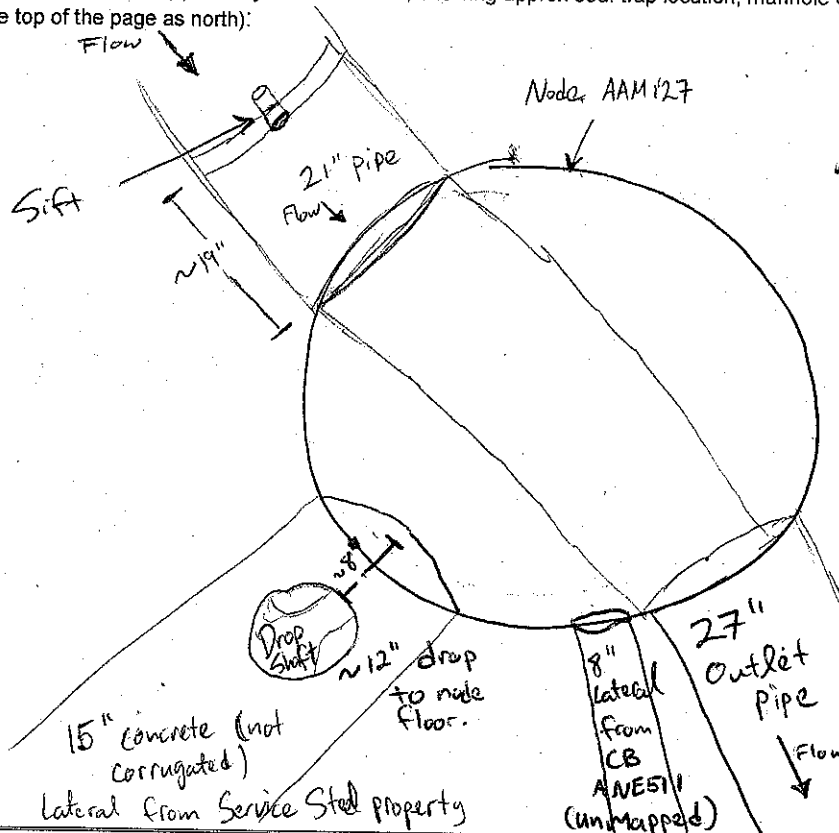 e top of the page as north):
Flow
Node AAM127
21" pipe
Flow
Sift
~19"
~8"
Drop
Shaft
~12" drop
to node
floor.
15" concrete (not
corrugated)
Lateral from Service Steel property
8"
Lateral
from
CB
ANE511
(unmapped)
27"
Outlet
pipe
Flow